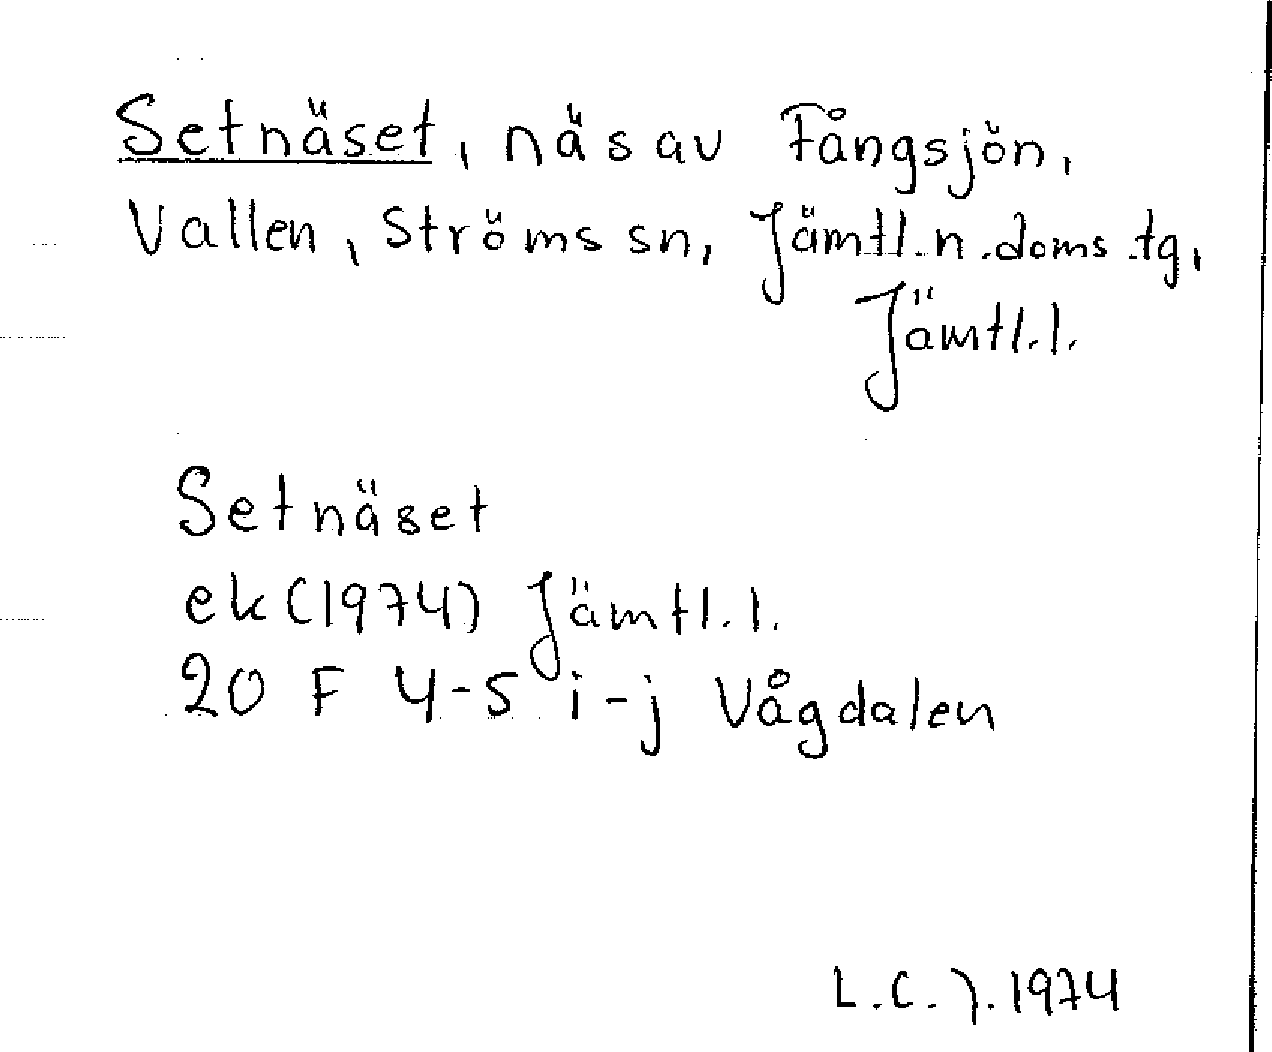 Setnäset, näs av Fångsjön,
Vallen, Ströms sn, Jämtl. n. doms.tg,
Jämtl. l.
Setnäset
ek (1974) Jämtl. l.
20 F 4-5 i-j Vågdalen
L.C.J. 1974